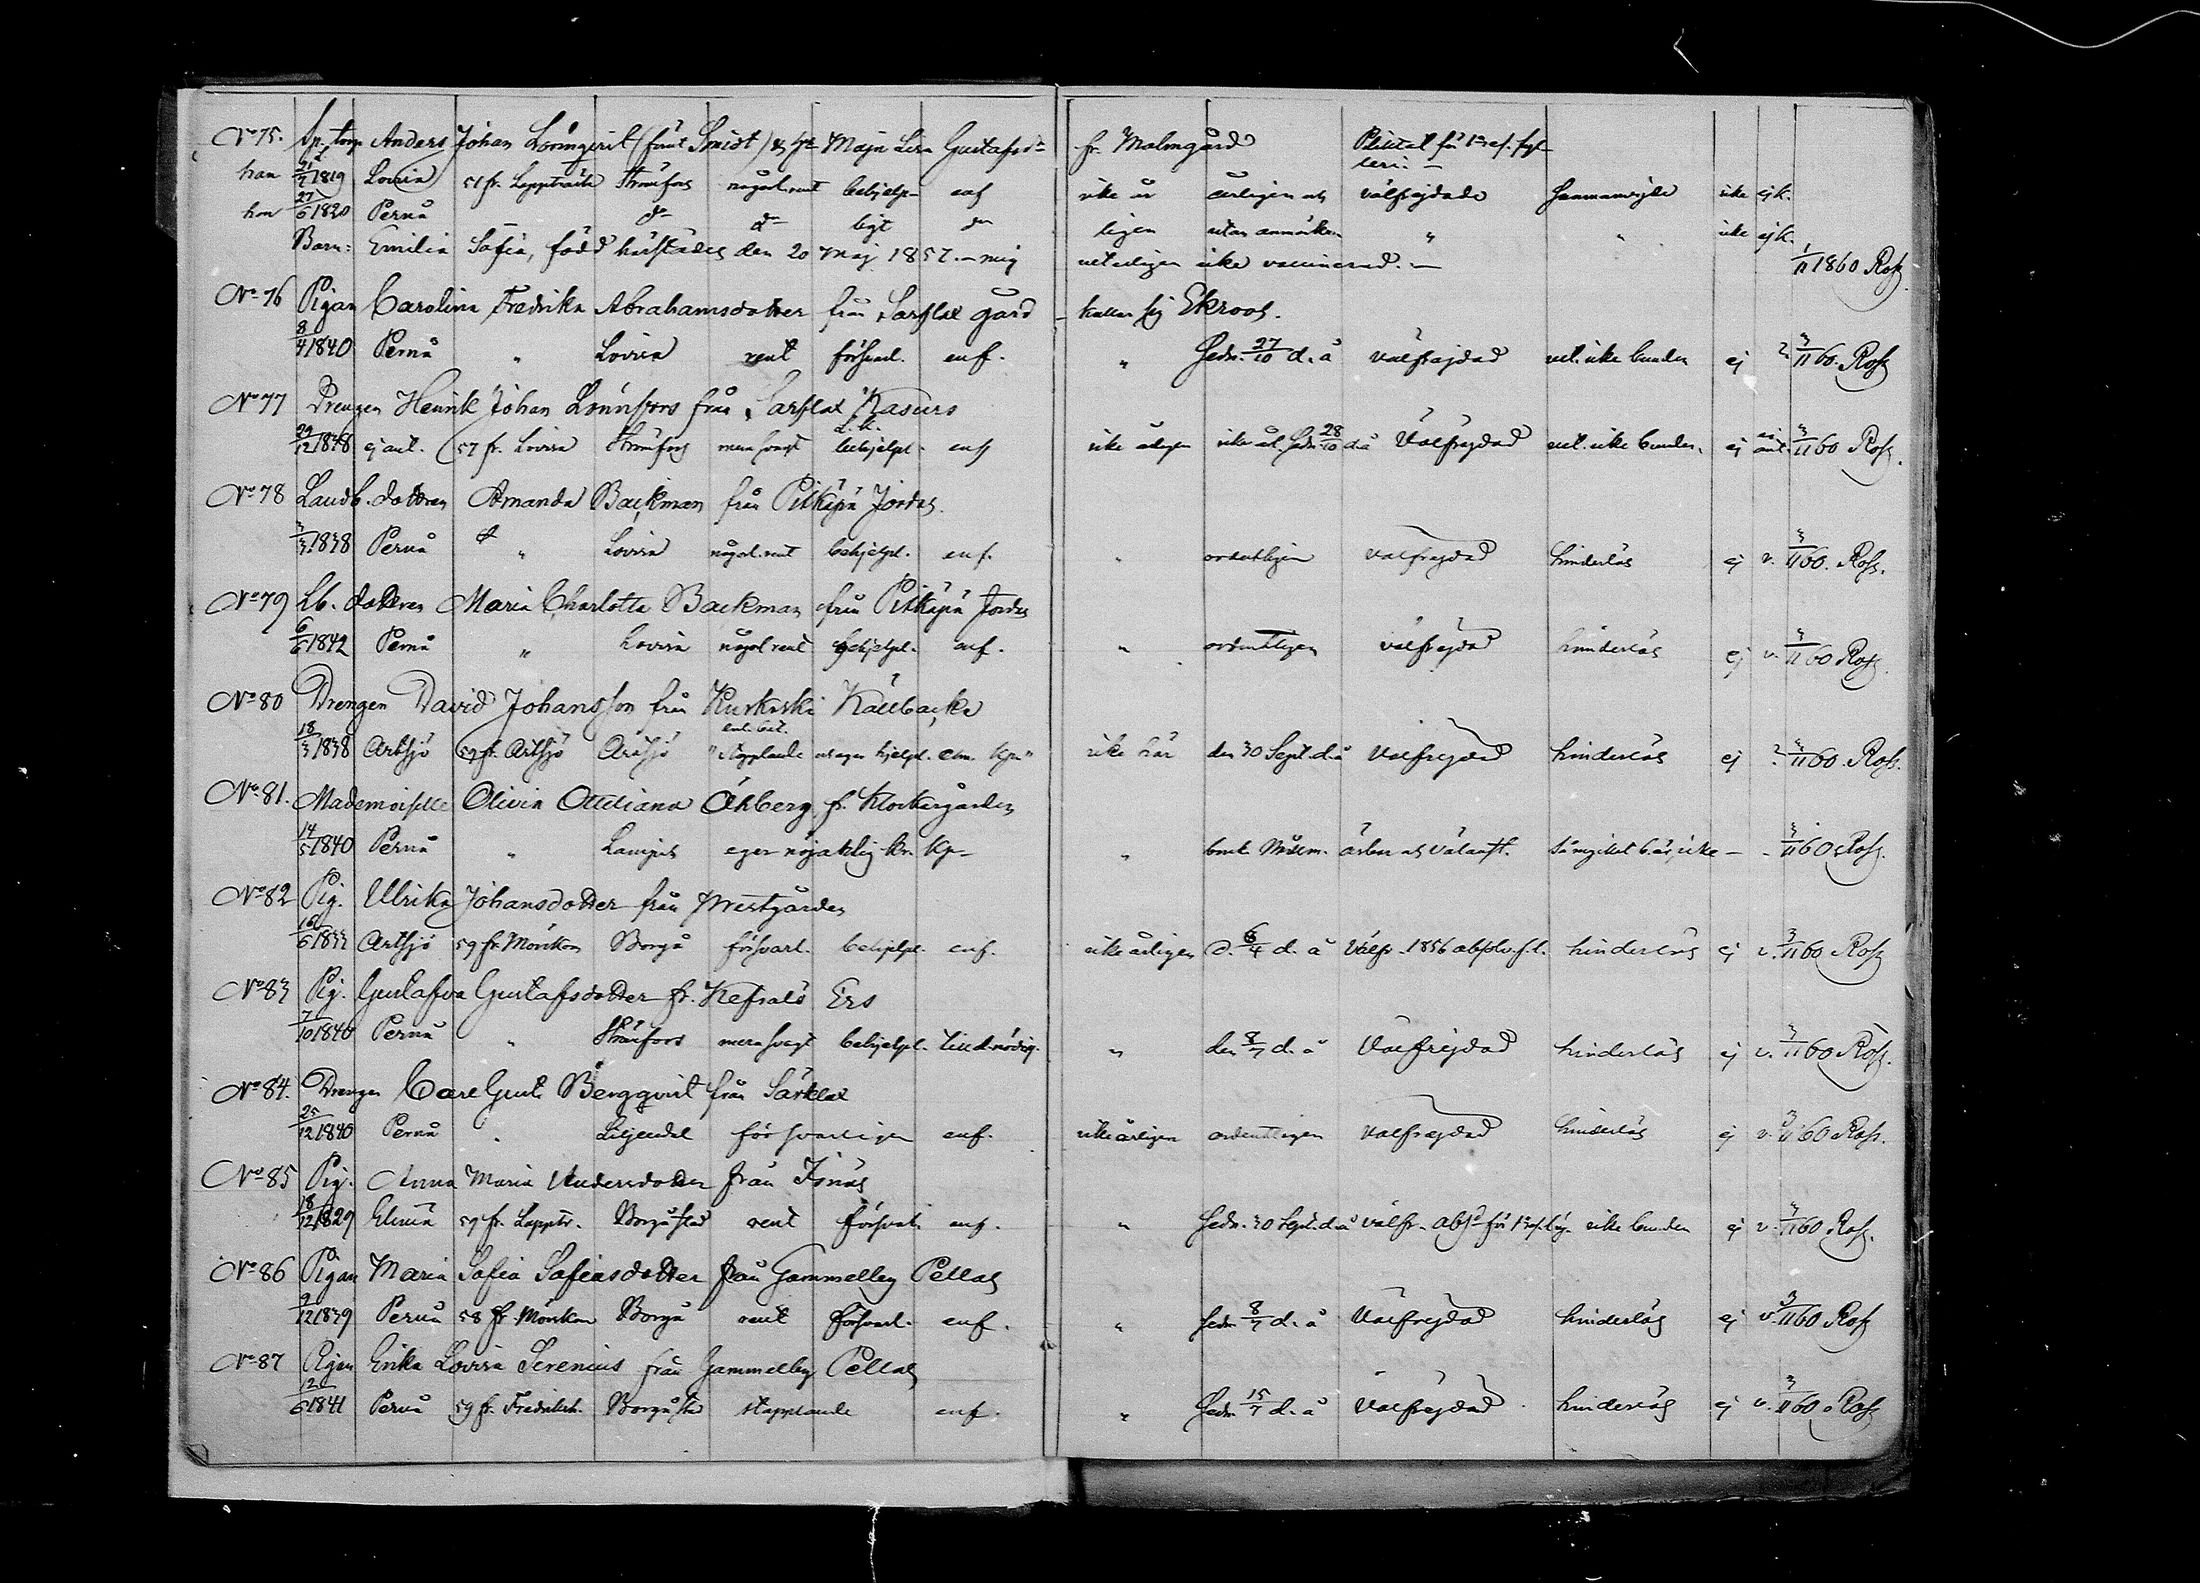 No 75. Anders Johan Lönnqvist (förut Smidt) & h. Maja Lisa Gustafsdr fr. Malmgård Pliktat för 1 res.
han 1819 Lovisa 51 fr. Lappträsk Strömfors någorl. rent behjelp- enf ikke år ärligen och välfrejdade sammanvigde ikke ej k.
hon 27/6 1820 Pernå " do do ligt do ligen utan anmärkn. " " ikke ej k.
Barn: Emilia Sofia, född härstädes den 20 Maj 1857. — mig veterligen ikke vaccinerad. — 1/11 1860 Ross
No 76 Pigan Carolina Fredrika Abrahamsdotter från Sarflax gård — kallar sig Ekroos.
8/4 1840 Pernå " Lovisa rent försvarl. enf. " sedn. 27/10 d. å välfrejdad vet. ikke bunden ej 3/11 60. Ross
No 77 Drengen Henrik Johan Lönnfors från Sarflax Kasurs
29/12 1838 ej ant. 57 fr. Lovisa Strömfors men svagt behjelpl. enf ikke årligen sedn 28/10 d å Välfrejdad vet. ikke bunden. ej ant. 3/11 60 Ross.
No 78 Landb. dottren Amanda Backman från Pitkäpä Jordas.
3/3 1838 Pernå " Lovisa någorl. rent behjelpl. enf. " ordentligen välfrejdad hinderlös ej v. 3/11 60. Ross.
No 79 Lb. dottren Maria Charlotta Backman från Pitkäpä Jordas
6/6 1842 Pernå " Lovisa någorl rent behjelpl. enf. " ordentligen välfrejdad hinderlös ej v. 3/11 60 Ross.
No 80 Drengen David Johansson från Kuskoski Källbacka
18/3 1838 Artsjö 57 fr. Artsjö Artsjö "stapplande hjelpl. " ikke här den 30 Sept. d. å Välfrejdad hinderlös ej 3/11 60. Ross.
No 81. Mademoiselle Olivia Ottiliana Öhberg fr. Klockargården
14/5 1840 Pernå " eger nöjaktig kr. kp— " ärbar och välanst. ikke — 3/11 60 Ross.
No 82 Pig. Ulrika Johansdotter från Westgården
16/6 1833 Artsjö 59 fr. Mörskom Borgå försvarl. behjelpl. enf. ikke årligen d. 6/4 d. å Välfr. 1856 absolv. f. l. hinderlös ej v. 3/11 60 Ross
No 83 Pig. Gustafva Gustafsdotter fr. Kefsalö Ers
7/10 1840 Pernå " Strömfors men svagt behjelpl. till d. nödig. " den 8/7 d. å Välfrejdad hinderlös ej v. 3/11 60 Ross.
No 84. Drengen Carl Gust. Bergqvist från Särklax
25/12 1840 Pernå " Liljendal försvarligen enf. ikke årligen ordentligen välfrejdad hinderlös ej v. 3/11 60 Ross.
No 85 Pig. Anna Maria Andersdotter från Jönäs
18/12 1829 Elimä 59 fr. Lapptr. Borgå stad rent försvarl. enf. " sedn. 30 Sept. d. å välfr. ikke bunden ej v. 3/11 60 Ross.
No 86 Pigan Maria Sofia Sofiasdotter från Gammelby Pellas
9/12 1839 Pernå 58 fr. Mörskom Borgå rent försvarl. enf. " sedn 8/7 d. å Välfrejdad hinderlös ej v. 3/11 60 Ross
No 87 Pigan Erika Lovisa Serenius från Gammelby Pellas
12/6 1841 Pernå 59 fr. Fredrikh. Borgå stad stapplande enf. " sedn 15/7 d. å Välfrejdad hinderlös ej v. 3/11 60 Ross